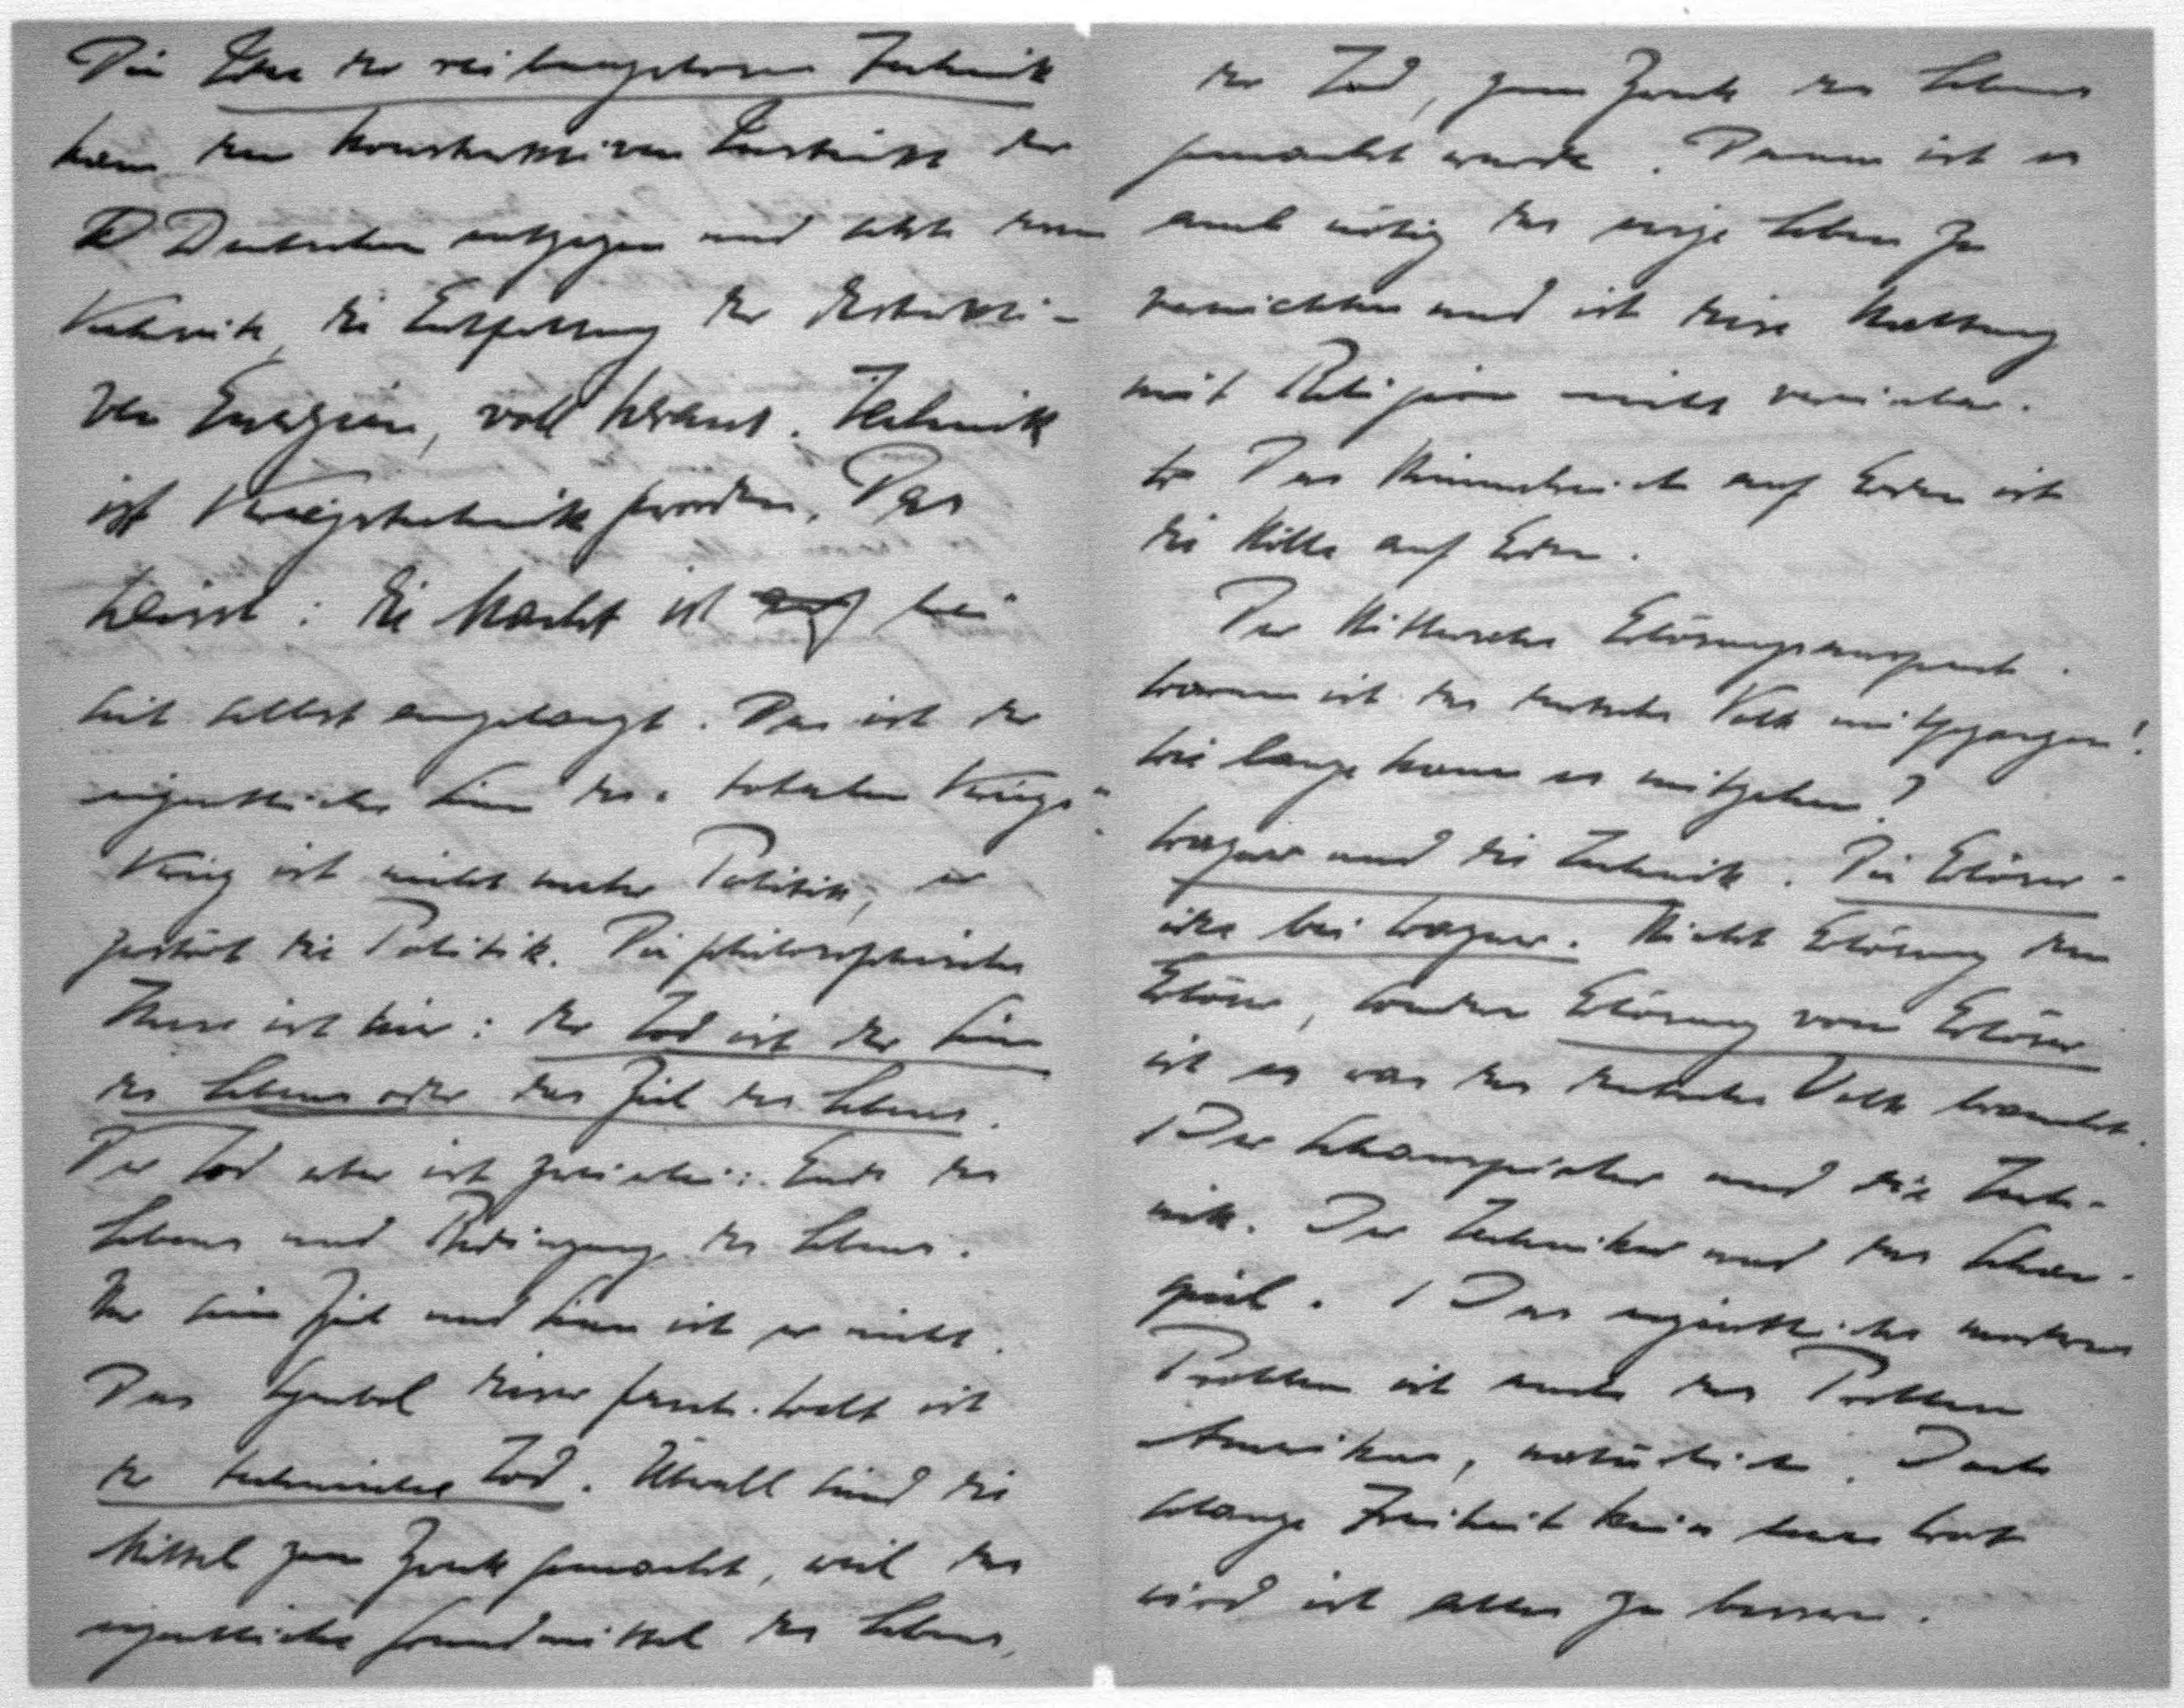 Die Idee der reibungslosen Technik
kam dem konstruktiven Instinkt der
D Deutschen entgegen und lebte
Technik, die Entfaltung der destrukti-
ven Energien, voll heraus. Technik
ist Kriegstechnik geworden. Das
heisst: die Macht ist auf bei
sich selbst angelangt. Das ist der
eigentliche Sinn des "totalen Kriegs"
Krieg ist nicht mehr Politik, er
zerstört die Politik. Die philosophische
These ist hier: der Tod ist der Sinn
des Lebens oder das Ziel des Lebens.
Der Tod aber ist zweierlei: Ende des
Lebens und Bedingung des Lebens.
Nur sein Ziel und Sinn ist er nicht.
Das Symbol dieser Welt ist
der technische Tod. Überall sind die
Mittel zum Zweck gemacht, weil das
eigentliche Grundmittel des Lebens,
der Tod, zum Zweck des Lebens
gemacht wurde. Darum ist es
auch nötig das ewige Leben zu
vernichten und ist diese Haltung
mit Religion nicht vereinbar.
Das Himmelreich auf Erden ist
die Hölle auf Erden.
Der Hitlersche Erlösungsanspruch.
Warum ist das deutsche Volk mitgegangen?
Wie lange kann es mitgehen?
Wagner und die Technik. Die Erlöser-
idee bei Wagner. Nicht Erlösung dem
Erlöser, sondern Erlösung vom Erlöser
ist es was das deutsche Volk braucht.
/ Der Schauspieler und die Tech-
nik. Der Techniker und das Schau-
spiel. / Das eigentliche moderne
Problem ist auch das Problem
Amerikas, natürlich. Doch
solange Freiheit kein leeres Wort
wird ist alles zu bessern.